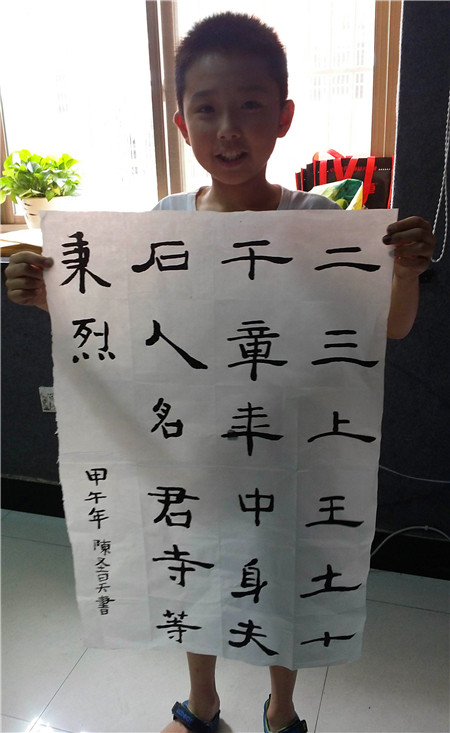 二三上王土十
干章中身夫
石人名君寺等
秉烈
甲午年 陳天書